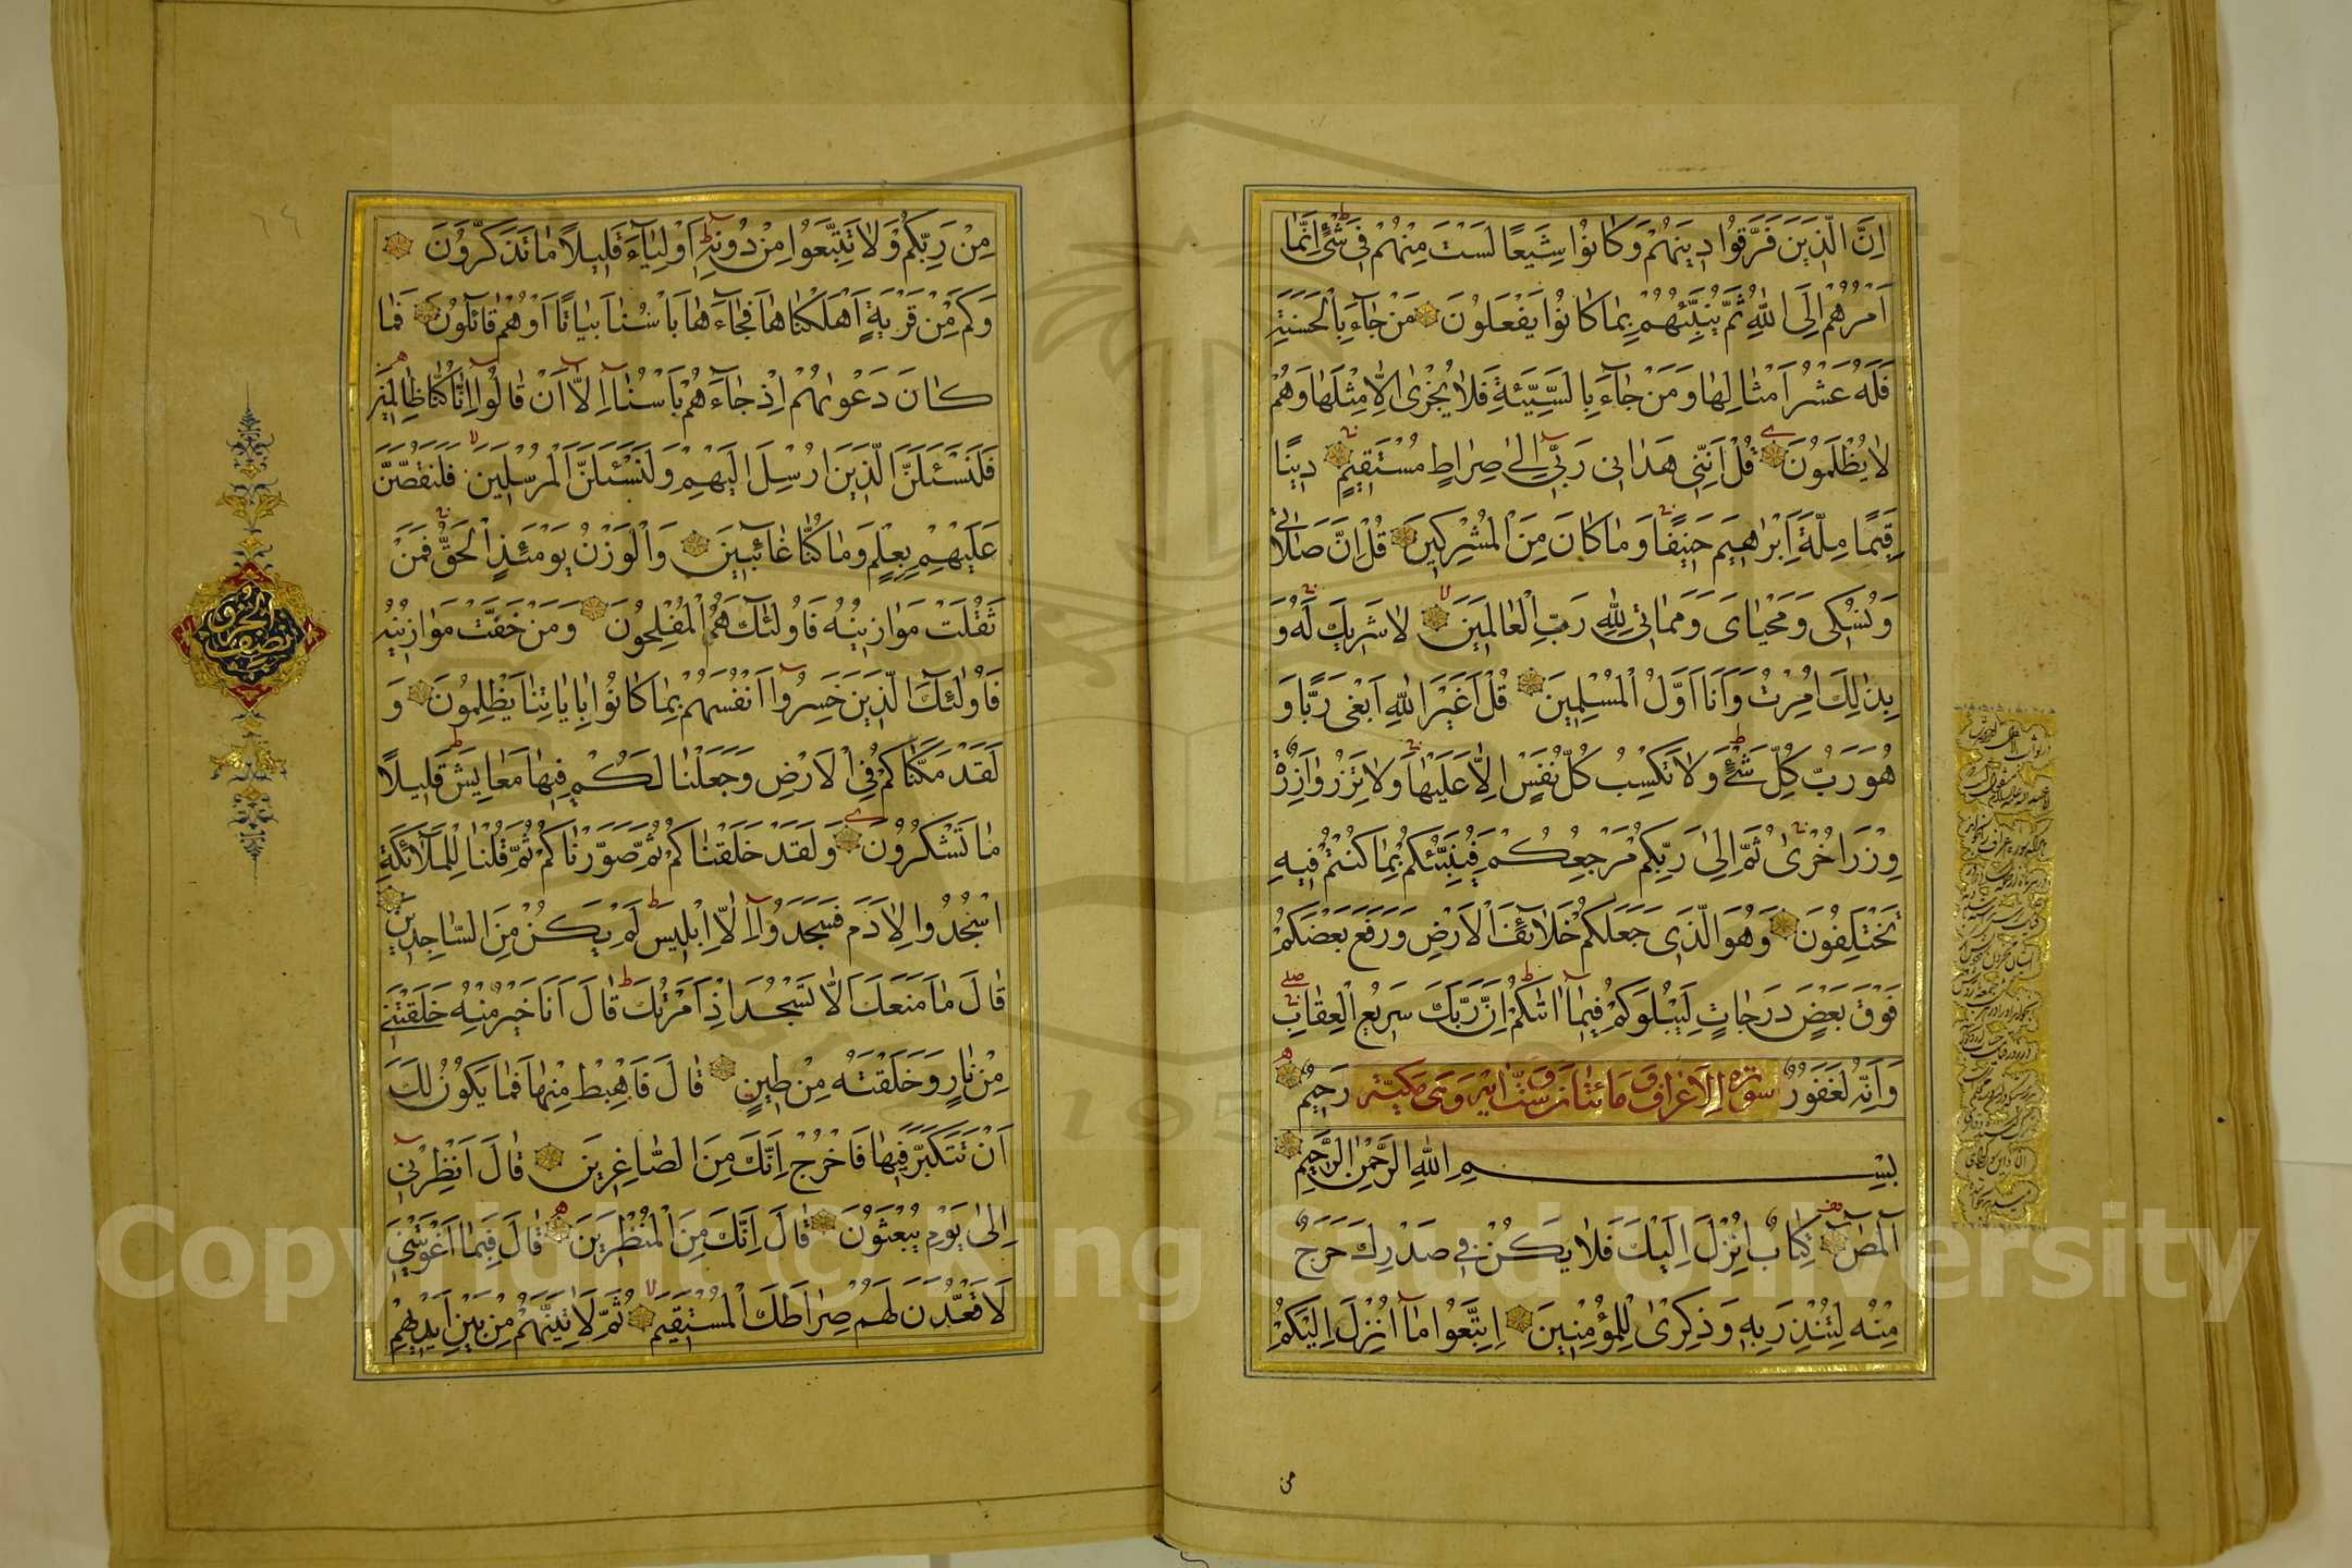 اِنَّ الَّذِينَ فَرَّقُوا دِينَهُمْ وَكَانُوا شِيَعًا لَسْتَ مِنْهُمْ فِي شَيْءٍ اِنَّمَا
اَمْرُهُمْ اِلَى اللّٰهِ ثُمَّ يُنَبِّئُهُمْ بِمَا كَانُوا يَفْعَلُونَ مَنْ جَاءَ بِالْحَسَنَةِ
فَلَهُ عَشْرُ اَمْثَالِهَا وَمَنْ جَاءَ بِالسَّيِّئَةِ فَلَا يُجْزٰى اِلَّا مِثْلَهَا وَهُمْ
لَا يُظْلَمُونَ قُلْ اِنَّنِي هَدَانِي رَبِّي اِلٰى صِرَاطٍ مُسْتَقِيمٍ دِينًا
قِيَمًا مِلَّةَ اِبْرَاهِيمَ حَنِيفًا وَمَا كَانَ مِنَ الْمُشْرِكِينَ قُلْ اِنَّ صَلَاتِي
وَنُسُكِي وَمَحْيَايَ وَمَمَاتِي لِلّٰهِ رَبِّ الْعَالَمِينَ لَا شَرِيكَ لَهُ وَ
بِذٰلِكَ اُمِرْتُ وَاَنَا اَوَّلُ الْمُسْلِمِينَ قُلْ اَغَيْرَ اللّٰهِ اَبْغِي رَبًّا وَ
هُوَ رَبُّ كُلِّ شَيْءٍ وَلَا تَكْسِبُ كُلُّ نَفْسٍ اِلَّا عَلَيْهَا وَلَا تَزِرُ وَازِرَةٌ
وِزْرَ اُخْرٰى ثُمَّ اِلٰى رَبِّكُمْ مَرْجِعُكُمْ فَيُنَبِّئُكُمْ بِمَا كُنْتُمْ فِيهِ
تَخْتَلِفُونَ وَهُوَ الَّذِي جَعَلَكُمْ خَلَائِفَ الْاَرْضِ وَرَفَعَ بَعْضَكُمْ
فَوْقَ بَعْضٍ دَرَجَاتٍ لِيَبْلُوَكُمْ فِيمَا اٰتٰىكُمْ اِنَّ رَبَّكَ سَرِيعُ الْعِقَابِ
وَاِنَّهُ لَغَفُورٌ رَحِيمٌ
سورة الاعراف مائتان وست اية وهى مكية
بِسْمِ اللّٰهِ الرَّحْمٰنِ الرَّحِيمِ
الٓمٓصٓ كِتَابٌ اُنْزِلَ اِلَيْكَ فَلَا يَكُنْ فِي صَدْرِكَ حَرَجٌ
مِنْهُ لِتُنْذِرَ بِهِ وَذِكْرٰى لِلْمُؤْمِنِينَ اِتَّبِعُوا مَا اُنْزِلَ اِلَيْكُمْ
من
مِنْ رَبِّكُمْ وَلَا تَتَّبِعُوا مِنْ دُونِهِ اَوْلِيَاءَ قَلِيلًا مَا تَذَكَّرُونَ
وَكَمْ مِنْ قَرْيَةٍ اَهْلَكْنَاهَا فَجَاءَهَا بَاْسُنَا بَيَاتًا اَوْ هُمْ قَائِلُونَ فَمَا
كَانَ دَعْوٰىهُمْ اِذْ جَاءَهُمْ بَاْسُنَا اِلَّا اَنْ قَالُوا اِنَّا كُنَّا ظَالِمِينَ
فَلَنَسْئَلَنَّ الَّذِينَ اُرْسِلَ اِلَيْهِمْ وَلَنَسْئَلَنَّ الْمُرْسَلِينَ فَلَنَقُصَّنَّ
عَلَيْهِمْ بِعِلْمٍ وَمَا كُنَّا غَائِبِينَ وَالْوَزْنُ يَوْمَئِذٍ الْحَقُّ فَمَنْ
ثَقُلَتْ مَوَازِينُهُ فَاُولٰئِكَ هُمُ الْمُفْلِحُونَ وَمَنْ خَفَّتْ مَوَازِينُهُ
فَاُولٰئِكَ الَّذِينَ خَسِرُوا اَنْفُسَهُمْ بِمَا كَانُوا بِاٰيَاتِنَا يَظْلِمُونَ وَ
لَقَدْ مَكَّنَّاكُمْ فِي الْاَرْضِ وَجَعَلْنَا لَكُمْ فِيهَا مَعَايِشَ قَلِيلًا
مَا تَشْكُرُونَ وَلَقَدْ خَلَقْنَاكُمْ ثُمَّ صَوَّرْنَاكُمْ ثُمَّ قُلْنَا لِلْمَلَائِكَةِ
اسْجُدُوا لِاٰدَمَ فَسَجَدُوا اِلَّا اِبْلِيسَ لَمْ يَكُنْ مِنَ السَّاجِدِينَ
قَالَ مَا مَنَعَكَ اَلَّا تَسْجُدَ اِذْ اَمَرْتُكَ قَالَ اَنَا خَيْرٌ مِنْهُ خَلَقْتَنِي
مِنْ نَارٍ وَخَلَقْتَهُ مِنْ طِينٍ قَالَ فَاهْبِطْ مِنْهَا فَمَا يَكُونُ لَكَ
اَنْ تَتَكَبَّرَ فِيهَا فَاخْرُجْ اِنَّكَ مِنَ الصَّاغِرِينَ قَالَ اَنْظِرْنِي
اِلٰى يَوْمِ يُبْعَثُونَ قَالَ اِنَّكَ مِنَ الْمُنْظَرِينَ قَالَ فَبِمَا اَغْوَيْتَنِي
لَاَقْعُدَنَّ لَهُمْ صِرَاطَكَ الْمُسْتَقِيمَ ثُمَّ لَاٰتِيَنَّهُمْ مِنْ بَيْنِ اَيْدِيهِمْ
نصف الحزب
Copyright © King Saud University